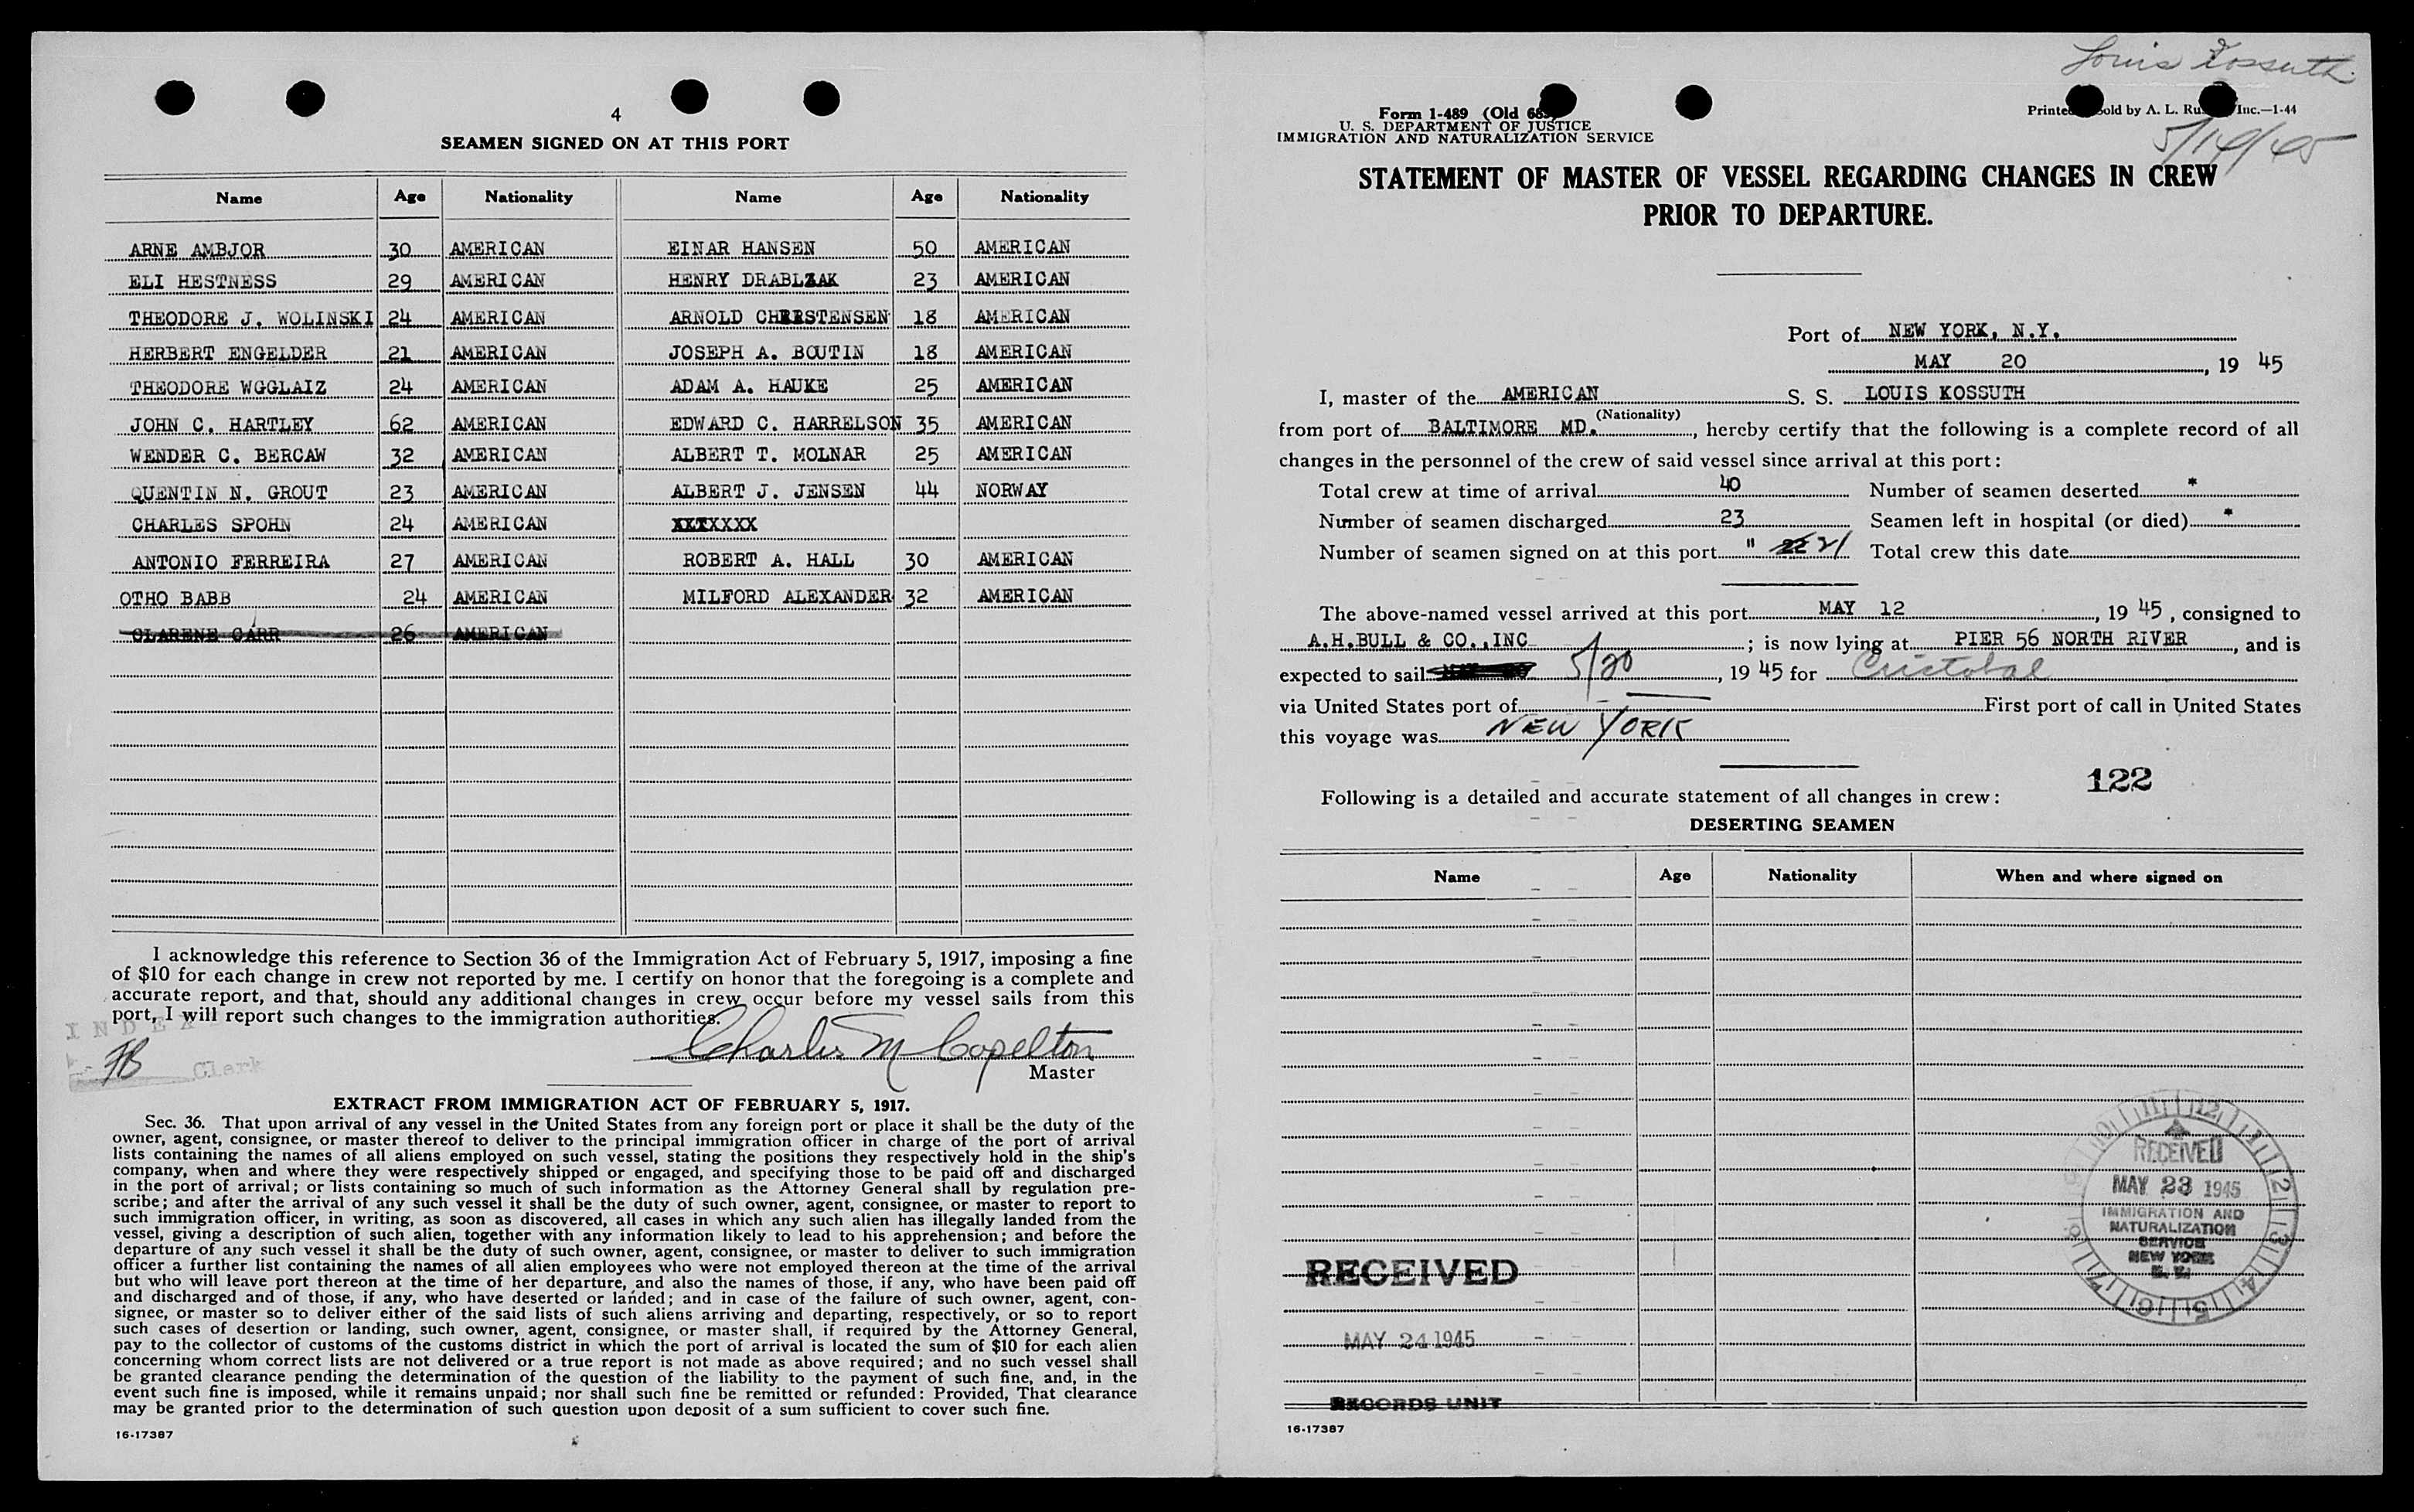 4
SEAMEN SIGNED ON AT THIS PORT
Name Age Nationality Name Age Nationality
ARNE AMBJOR 30 AMERICAN EINAR HANSEN 50 AMERICAN
ELI HESTNESS 29 AMERICAN HENRY DRABLZAK 23 AMERICAN
THEODORE J. WOLINSKI 24 AMERICAN ARNOLD CHRISTENSEN 18 AMERICAN
HERBERT ENGELDER 21 AMERICAN JOSEPH A. BOUTIN 18 AMERICAN
THEODORE WGGLAIZ 24 AMERICAN ADAM A. HAUKE 25 AMERICAN
JOHN C. HARTLEY 62 AMERICAN EDWARD C. HARRELSON 35 AMERICAN
WENDER C. BERCAW 32 AMERICAN ALBERT T. MOLNAR 25 AMERICAN
QUENTIN N. GROUT 23 AMERICAN ALBERT J. JENSEN 44 NORWAY
CHARLES SPOHN 24 AMERICAN XXXXXXX
ANTONIO FERREIRA 27 AMERICAN ROBERT A. HALL 30 AMERICAN
OTHO BABB 24 AMERICAN MILFORD ALEXANDER 32 AMERICAN
CLARENE CARR 26 AMERICAN
I acknowledge this reference to Section 36 of the Immigration Act of February 5, 1917, imposing a fine
of $10 for each change in crew not reported by me. I certify on honor that the foregoing is a complete and
accurate report, and that, should any additional changes in crew occur before my vessel sails from this
port, I will report such changes to the immigration authorities.
INDEX
FB Clerk
Charles M Copelton
Master
EXTRACT FROM IMMIGRATION ACT OF FEBRUARY 5, 1917.
Sec. 36. That upon arrival of any vessel in the United States from any foreign port or place it shall be the duty of the
owner, agent, consignee, or master thereof to deliver to the principal immigration officer in charge of the port of arrival
lists containing the names of all aliens employed on such vessel, stating the positions they respectively hold in the ship's
company, when and where they were respectively shipped or engaged, and specifying those to be paid off and discharged
in the port of arrival; or lists containing so much of such information as the Attorney General shall by regulation pre-
scribe; and after the arrival of any such vessel it shall be the duty of such owner, agent, consignee, or master to report to
such immigration officer, in writing, as soon as discovered, all cases in which any such alien has illegally landed from the
vessel, giving a description of such alien, together with any information likely to lead to his apprehension; and before the
departure of any such vessel it shall be the duty of such owner, agent, consignee, or master to deliver to such immigration
officer a further list containing the names of all alien employees who were not employed thereon at the time of the arrival
but who will leave port thereon at the time of her departure, and also the names of those, if any, who have been paid off
and discharged and of those, if any, who have deserted or landed; and in case of the failure of such owner, agent, con-
signee, or master so to deliver either of the said lists of such aliens arriving and departing, respectively, or so to report
such cases of desertion or landing, such owner, agent, consignee, or master shall, if required by the Attorney General,
pay to the collector of customs of the customs district in which the port of arrival is located the sum of $10 for each alien
concerning whom correct lists are not delivered or a true report is not made as above required; and no such vessel shall
be granted clearance pending the determination of the question of the liability to the payment of such fine, and, in the
event such fine is imposed, while it remains unpaid; nor shall such fine be remitted or refunded: Provided, That clearance
may be granted prior to the determination of such question upon deposit of a sum sufficient to cover such fine.
16-17387
Louis Kossuth
Form 1-489 (Old 68
U. S. DEPARTMENT OF JUSTICE
IMMIGRATION AND NATURALIZATION SERVICE
Printed Sold by A. L. Ru Inc.—1-44
STATEMENT OF MASTER OF VESSEL REGARDING CHANGES IN CREW
PRIOR TO DEPARTURE.
Port of NEW YORK, N.Y.
MAY 20, 19 45
I, master of the AMERICAN S. S. LOUIS KOSSUTH
(Nationality)
from port of BALTIMORE MD., hereby certify that the following is a complete record of all
changes in the personnel of the crew of said vessel since arrival at this port:
Total crew at time of arrival 40 Number of seamen deserted *
Number of seamen discharged 23 Seamen left in hospital (or died) *
Number of seamen signed on at this port " 22 21 Total crew this date
The above-named vessel arrived at this port MAY 12, 19 45, consigned to
A.H.BULL & CO.,INC; is now lying at PIER 56 NORTH RIVER, and is
expected to sail 5/20, 19 45 for Cristobal
via United States port of First port of call in United States
this voyage was NEW YORK
122
Following is a detailed and accurate statement of all changes in crew:
DESERTING SEAMEN
Name Age Nationality When and where signed on
RECEIVED
MAY 23 1945
IMMIGRATION AND
NATURALIZATION
SERVICE
NEW YORK
RECEIVED
MAY 24 1945
RECORDS UNIT
16-17387